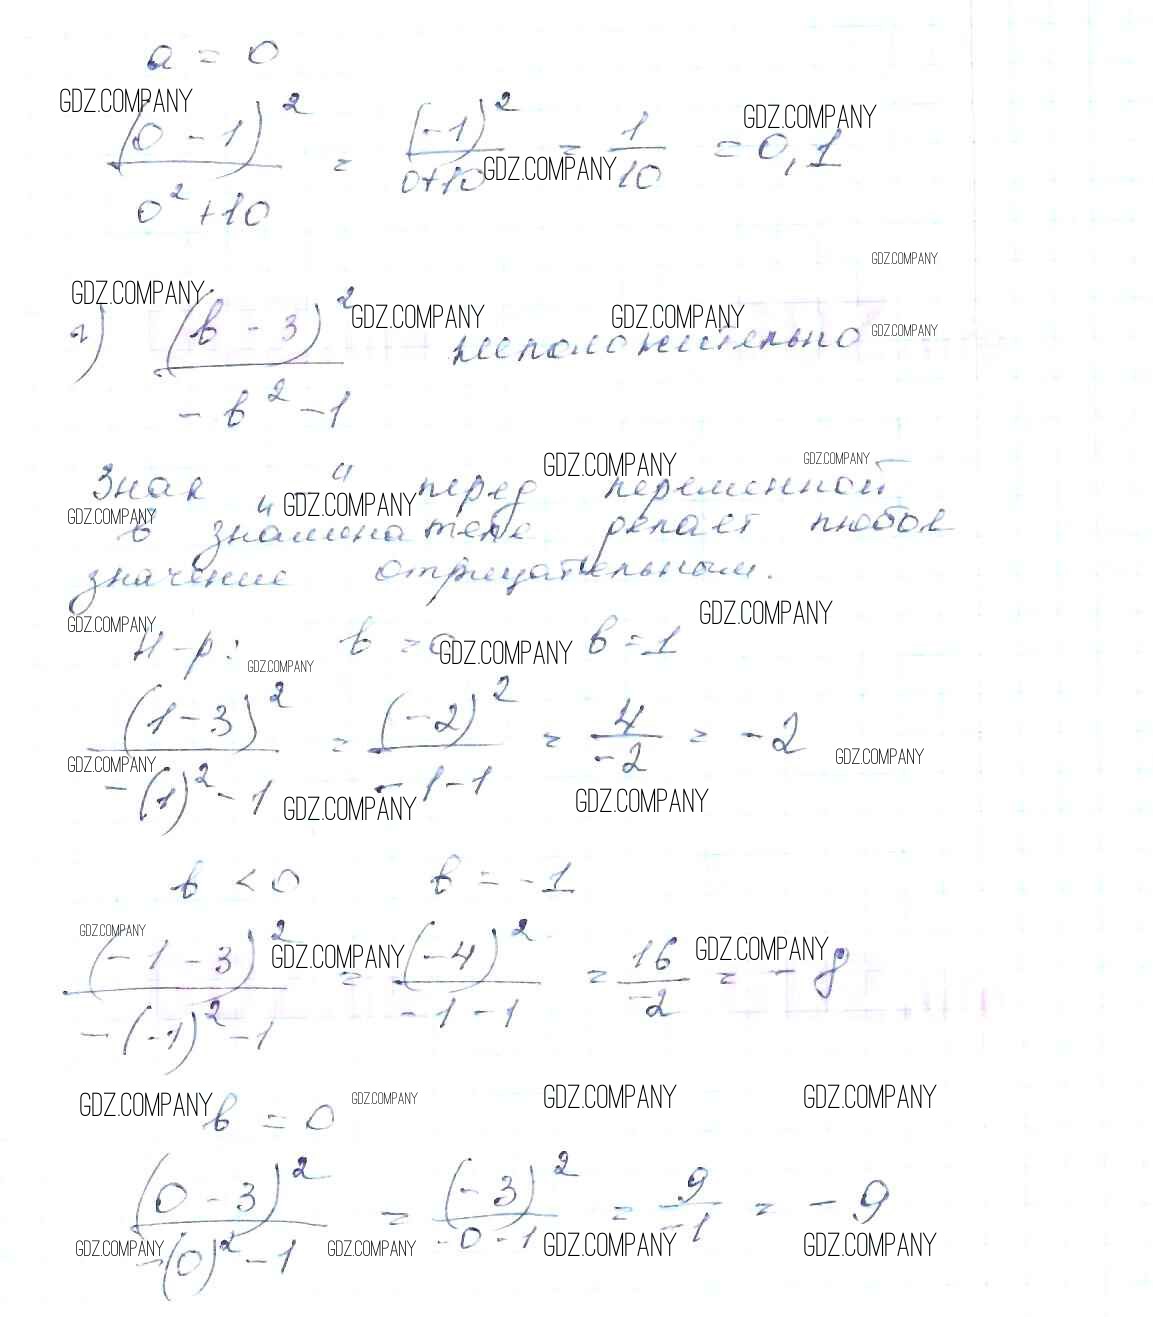 a = 0
GDZ.COMPANY
GDZ.COMPANY
(0 - 1)² / 0² + 10 = (-1)² / 0+10 = 1/10 = 0,1
GDZ.COMPANY
GDZ.COMPANY
GDZ.COMPANY
GDZ.COMPANY GDZ.COMPANY
г) (b - 3)² / -b² - 1 неположительно
GDZ.COMPANY
GDZ.COMPANY GDZ.COMPANY
Знак „-“ перед переменной
GDZ.COMPANY GDZ.COMPANY
в знаменателе делает любое
значение отрицательным.
GDZ.COMPANY
GDZ.COMPANY
Н-р: b = 1
GDZ.COMPANY
GDZ.COMPANY
(1 - 3)² / -(1)² - 1 = (-2)² / -1 - 1 = 4/-2 = -2
GDZ.COMPANY
GDZ.COMPANY
GDZ.COMPANY GDZ.COMPANY
b < 0 b = -1
GDZ.COMPANY
GDZ.COMPANY GDZ.COMPANY
(-1 - 3)² / -(-1)² - 1 = (-4)² / -1 - 1 = 16/-2 = -8
GDZ.COMPANY GDZ.COMPANY GDZ.COMPANY GDZ.COMPANY
b = 0
(0 - 3)² / -(0)² - 1 = (-3)² / -0 - 1 = 9/-1 = -9
GDZ.COMPANY GDZ.COMPANY GDZ.COMPANY GDZ.COMPANY